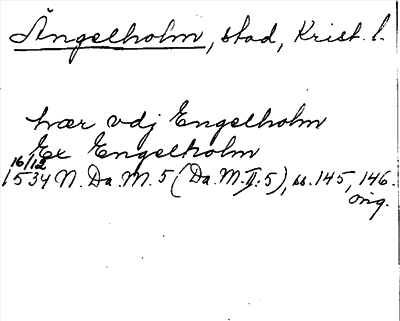 Ängelholm, stad, Krist. l.
hær vdj Engelholm
Ex Engelholm
16/12
1534 N. Da. M. 5 (Da. M. II:5), ss. 145, 146.
orig.